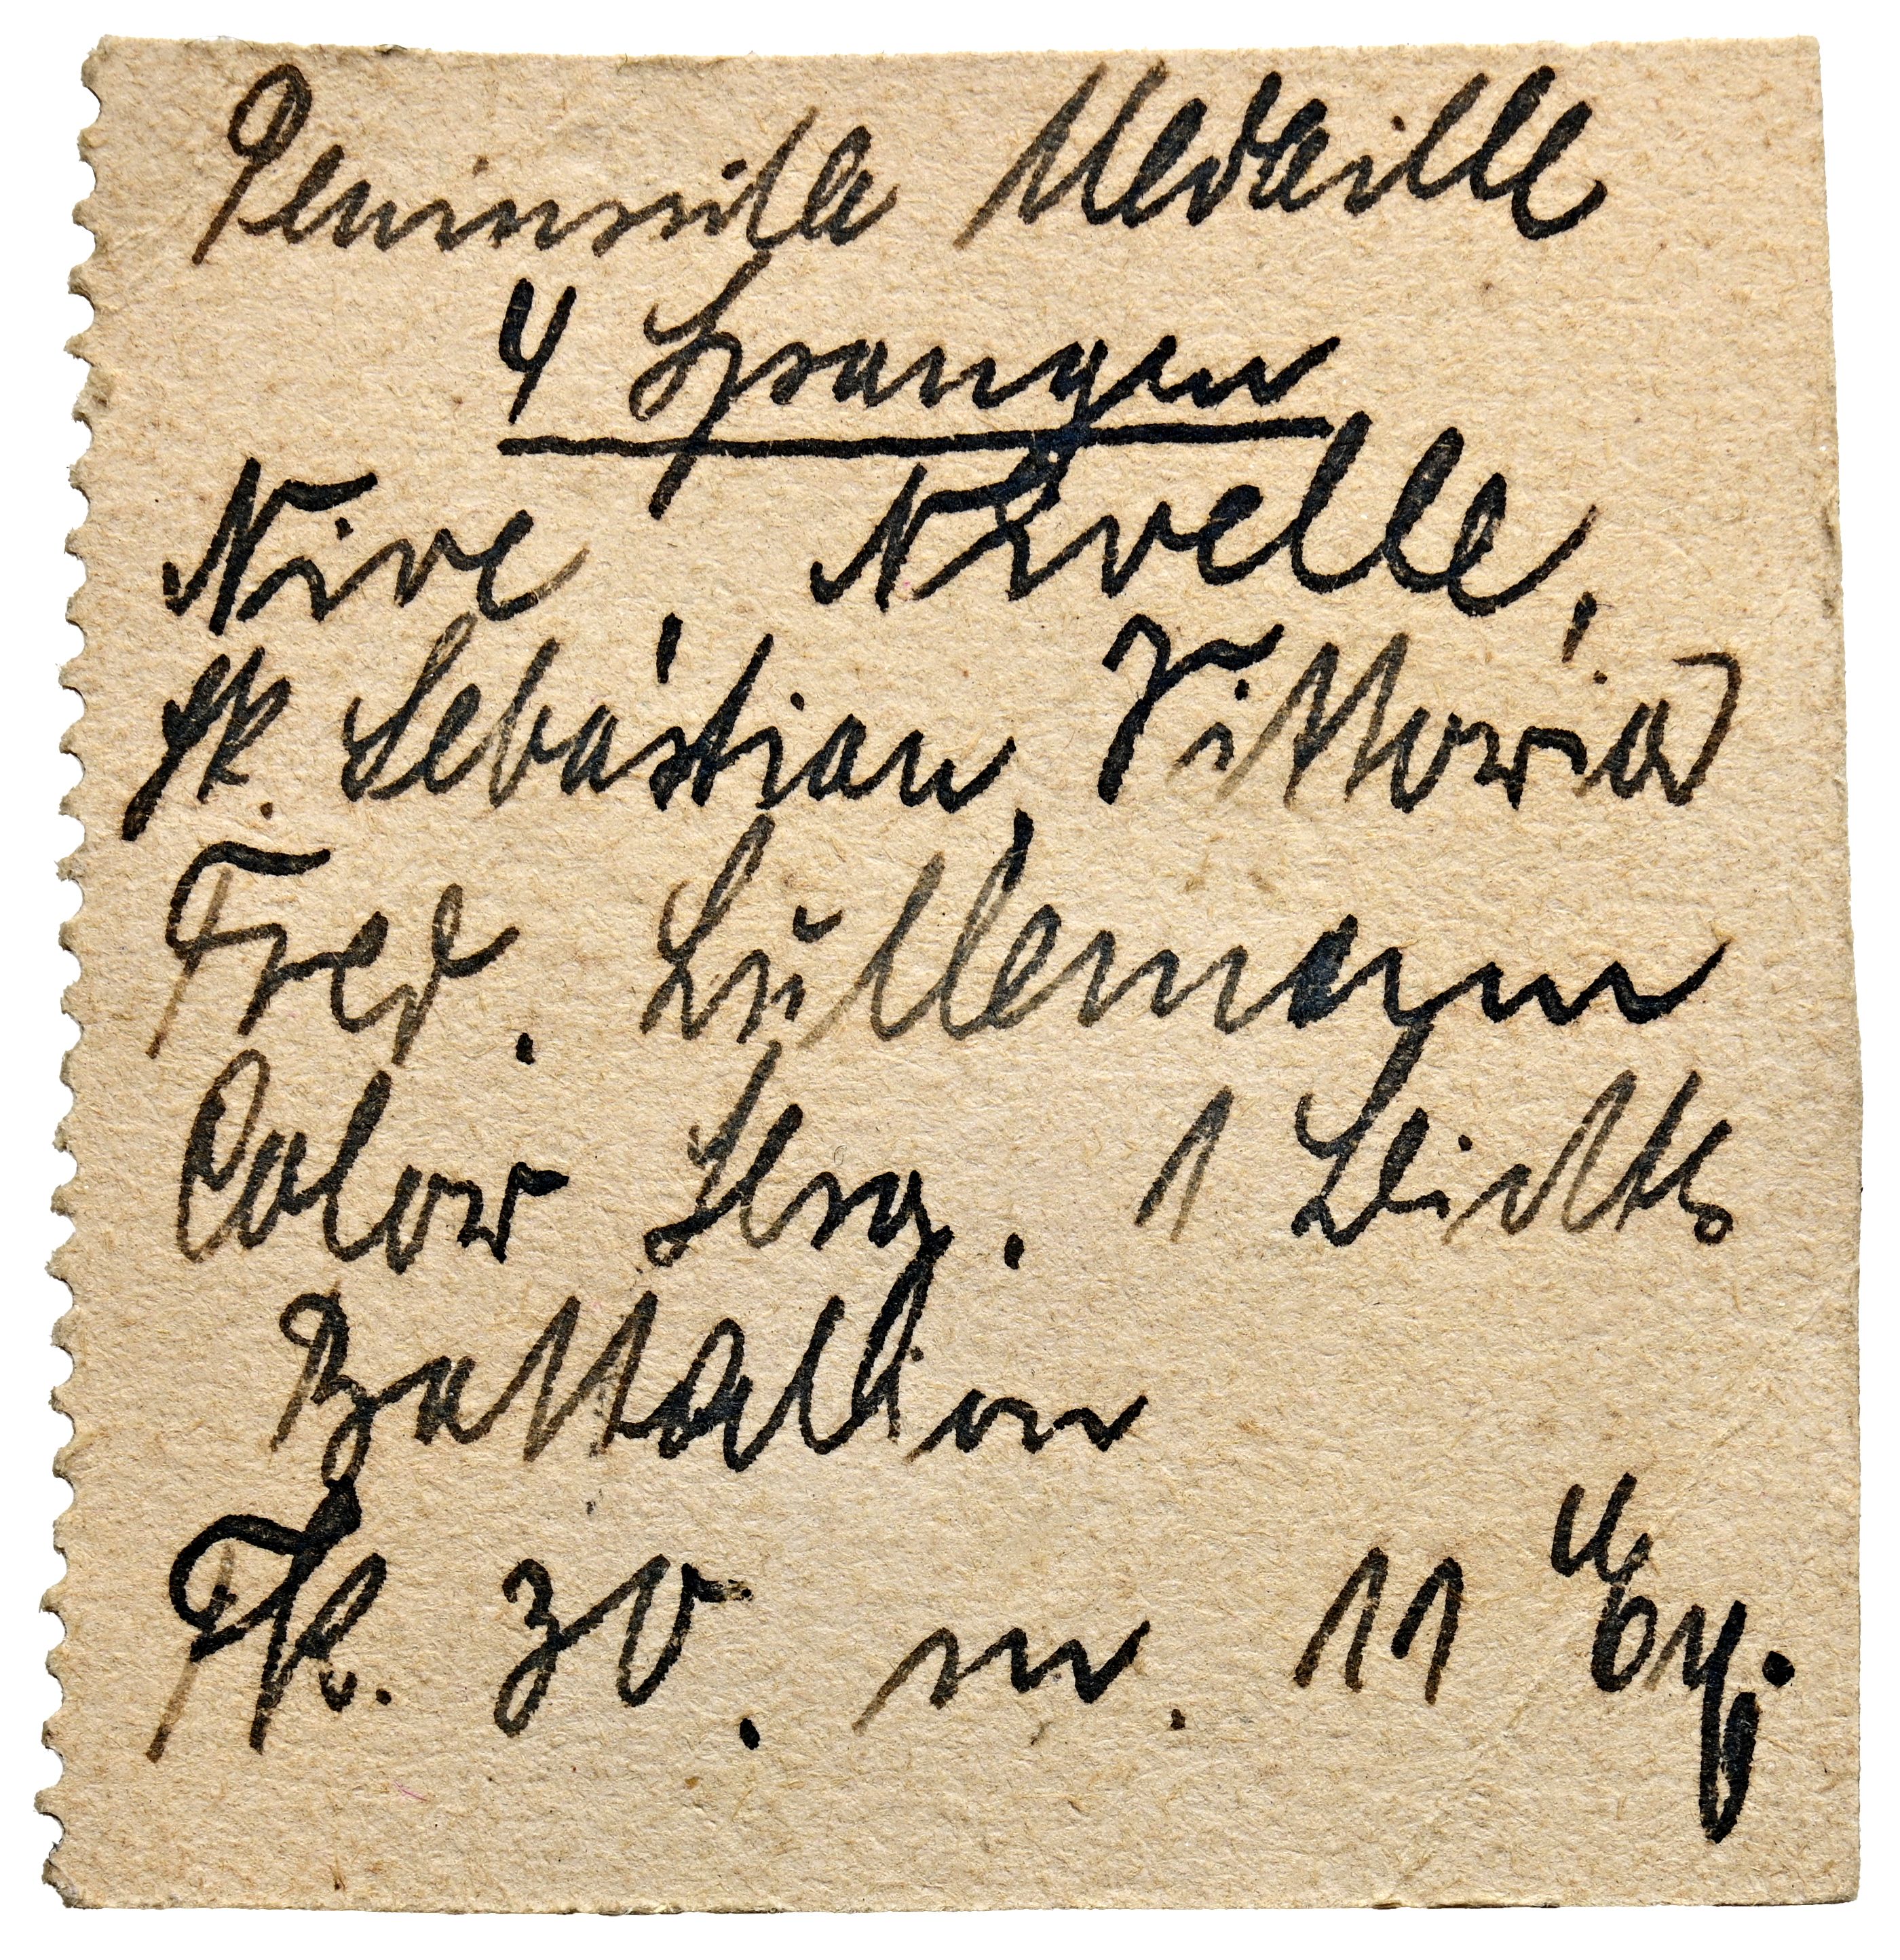 Peninsula Medaille
4 Spangen
Nive, Nivelle,
St. Sebastian, Vittoria
Fred. Lüllemann
Color Serg. 1 Leichts
Battalion
30. 11